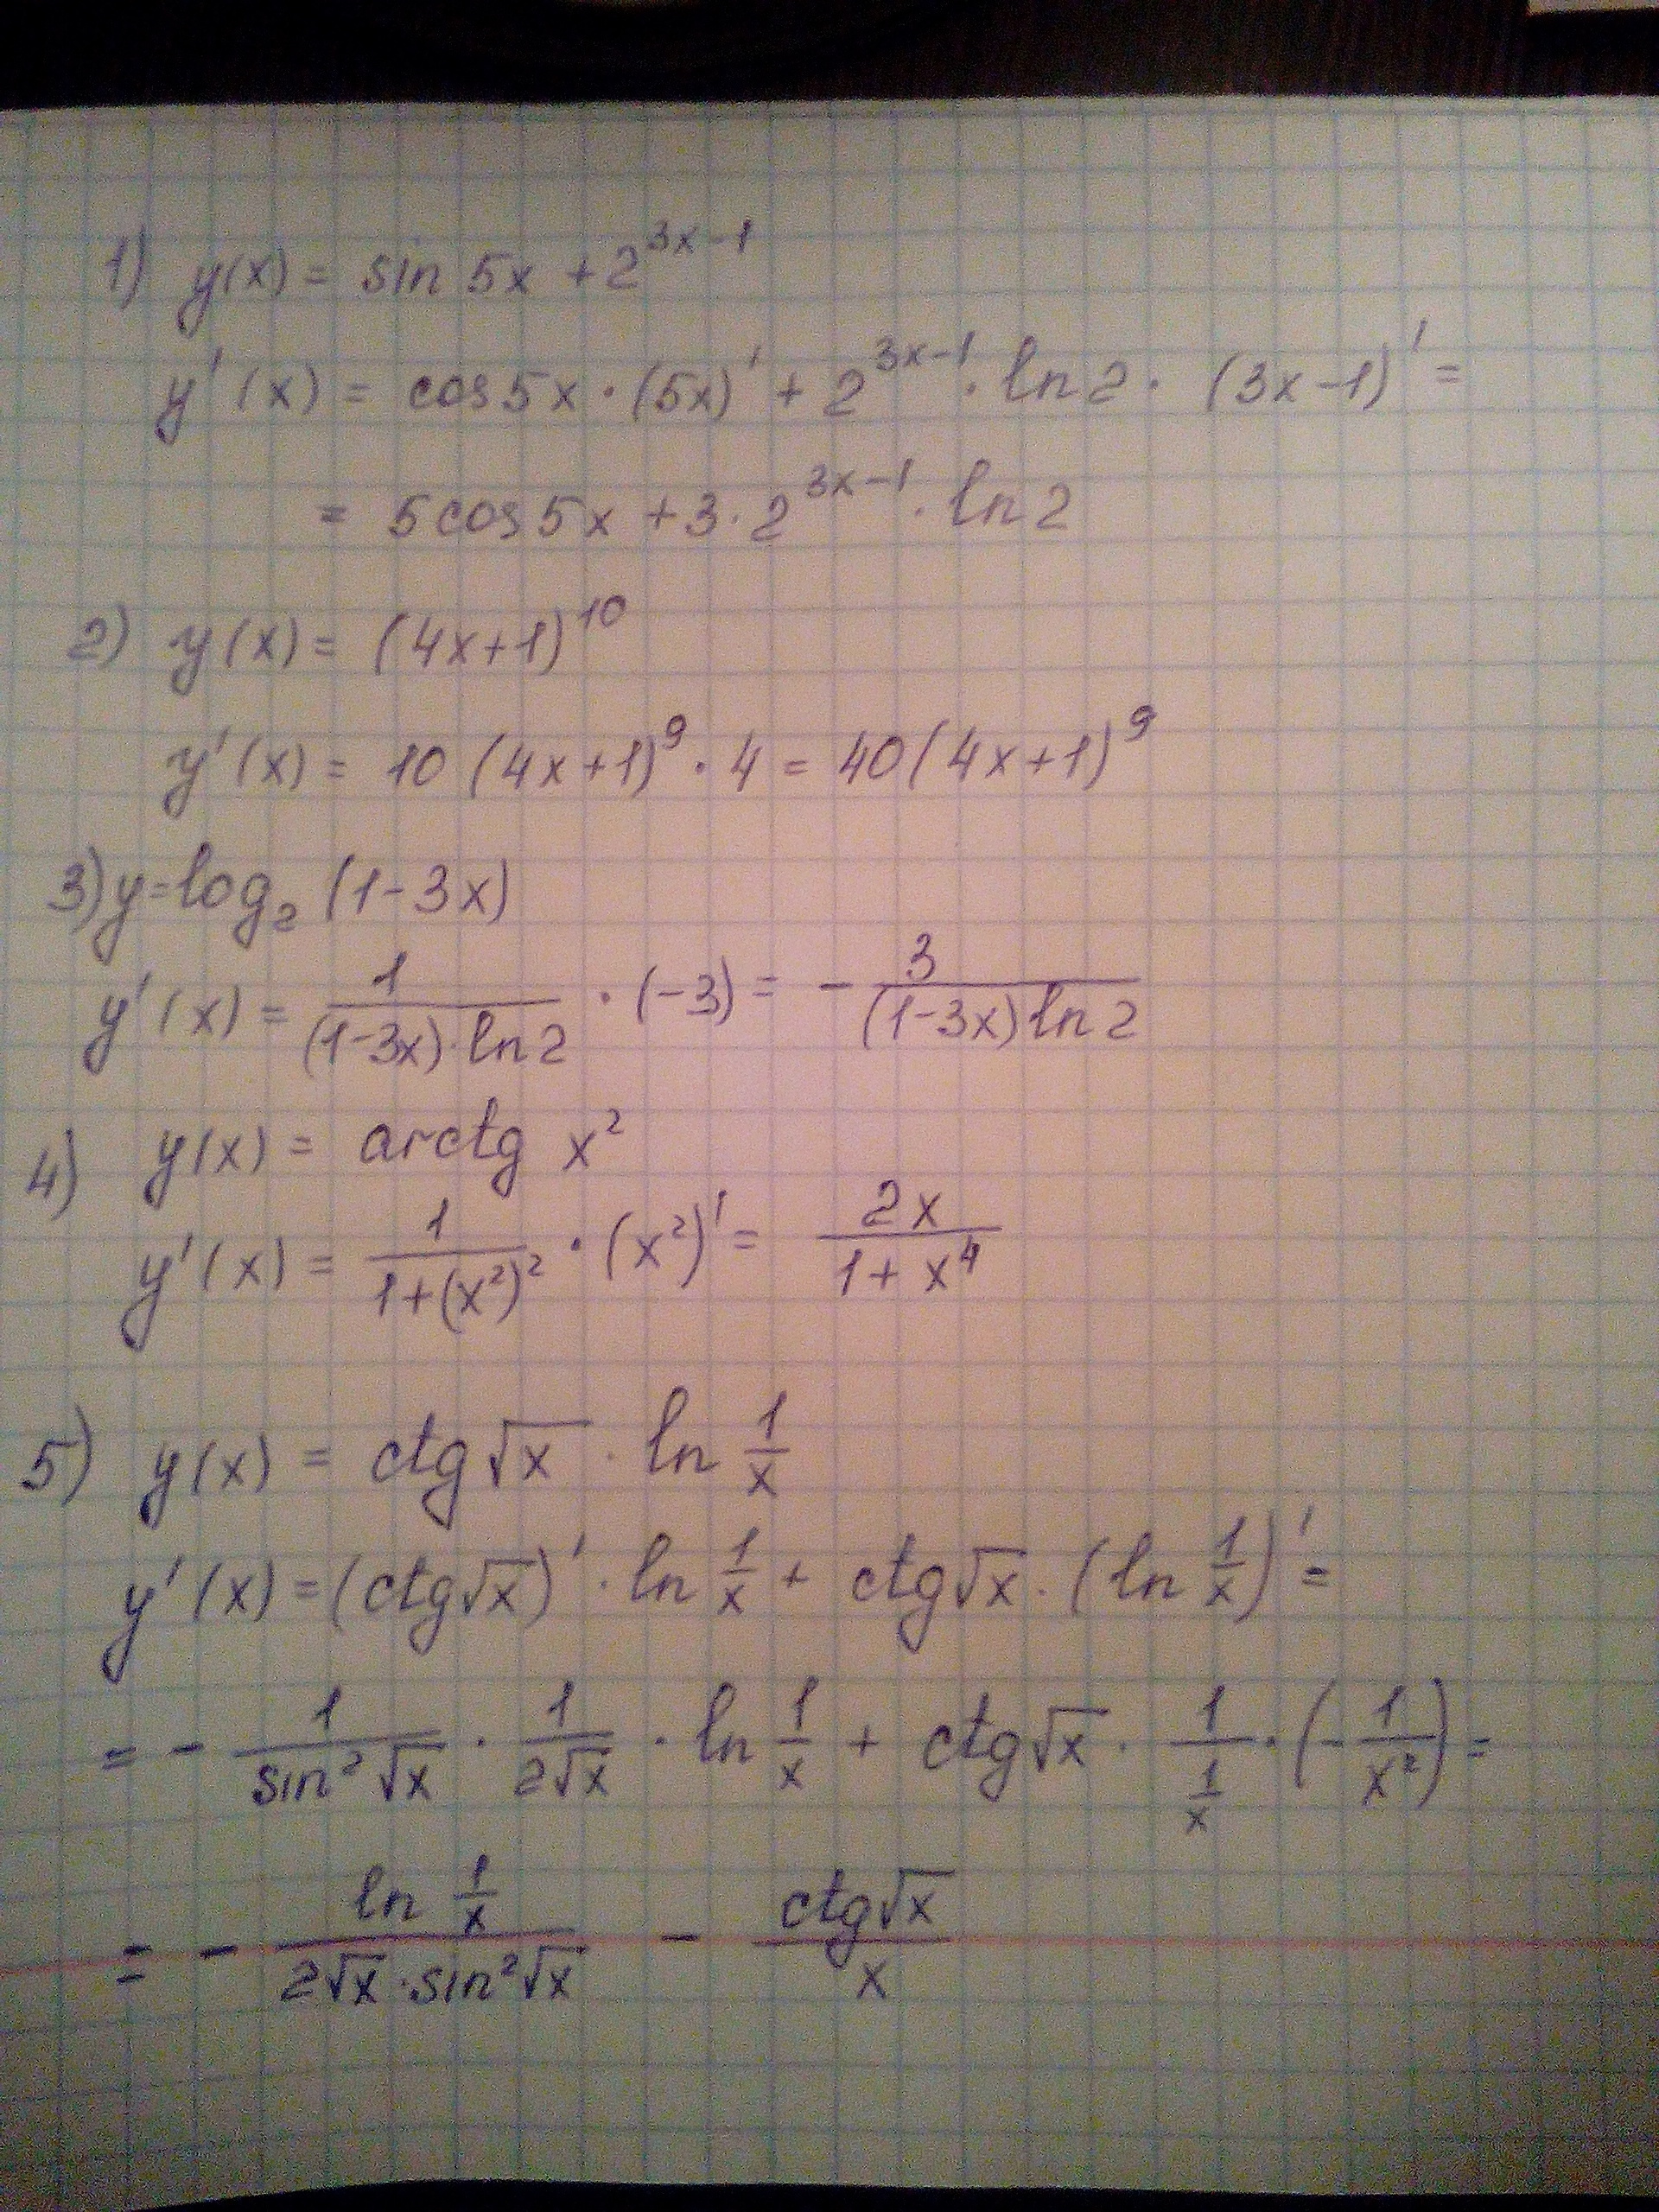 1) y(x) = sin 5x + 2^{3x-1}
y'(x) = cos 5x · (5x)' + 2^{3x-1} · ln 2 · (3x-1)' =
= 5 cos 5x + 3 · 2^{3x-1} · ln 2
2) y(x) = (4x+1)^{10}
y'(x) = 10 (4x+1)^9 · 4 = 40(4x+1)^9
3) y = log_2 (1-3x)
y'(x) = \frac{1}{(1-3x)·ln 2} · (-3) = - \frac{3}{(1-3x) ln 2}
4) y(x) = arctg x^2
y'(x) = \frac{1}{1+(x^2)^2} · (x^2)' = \frac{2x}{1+x^4}
5) y(x) = ctg √x · ln \frac{1}{x}
y'(x) = (ctg √x)' · ln \frac{1}{x} + ctg √x · (ln \frac{1}{x})' =
= - \frac{1}{sin^2 √x} · \frac{1}{2√x} · ln \frac{1}{x} + ctg √x · \frac{1}{\frac{1}{x}} · (-\frac{1}{x^2}) =
= - \frac{ln \frac{1}{x}}{2√x · sin^2 √x} - \frac{ctg √x}{x}